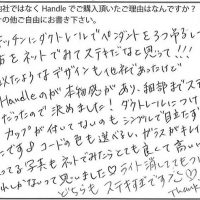 社ではなくHandleでご購入頂いたご理由はなんですか？
の他ご自由にお書き下さい。
キッチンにダクトレールでペンダントを3つ吊るして
をネットでみてステキだなと思って!!!
似たようなデザインも他社であったけど
Handleのが本物感があり、細部までステ
だったので決めました！ダクトレールにつけ
カップが付いてないのもシンプルで自立たず
です♪コードの色も選べるし、ガラスがキレイ
ってる写真もネットでみたらとても良くて高い
れしかないって思いました♡ライト消しててもつけ
どちらも ステキすぎです♡♡
Thank